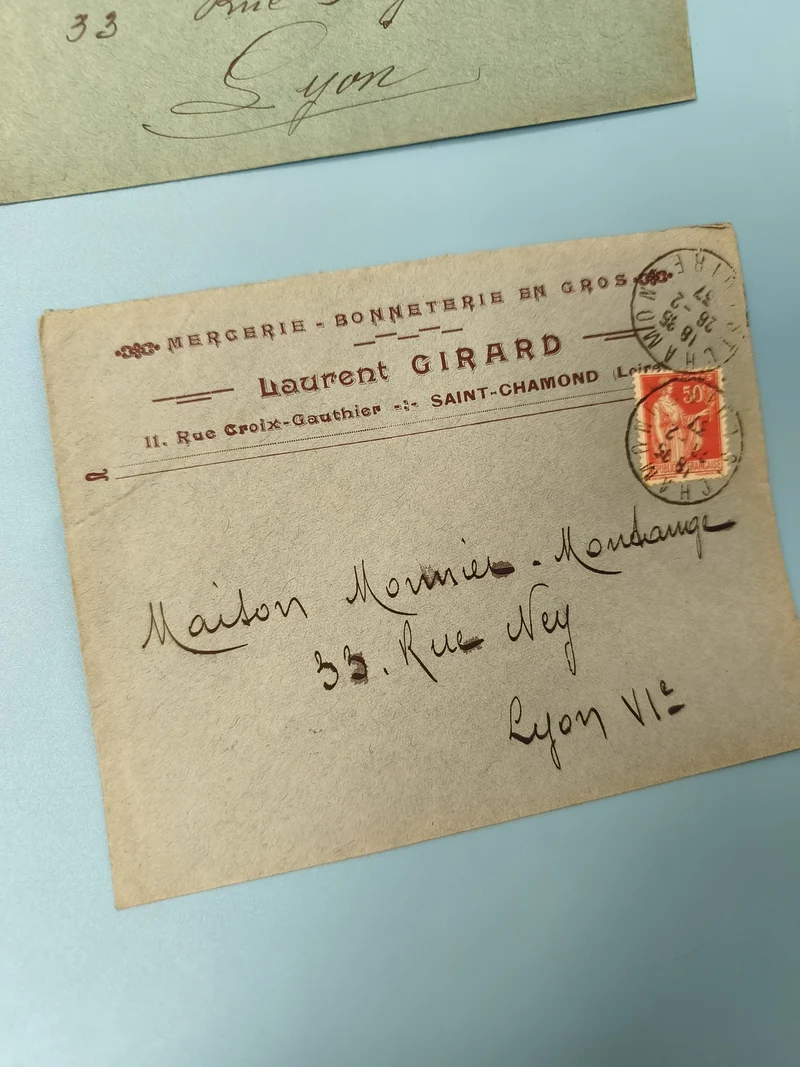 33 Rue
Lyon
MERCERIE - BONNETERIE EN GROS
Laurent GIRARD
11. Rue Croix-Gauthier -:- SAINT-CHAMOND (Loire)
50
REPUBLIQUE FRANCAISE
ST CHAMOND
LOIRE
18 35
26 - 2
37
Maison Monnier - Montange
33. Rue Ney
Lyon VIe